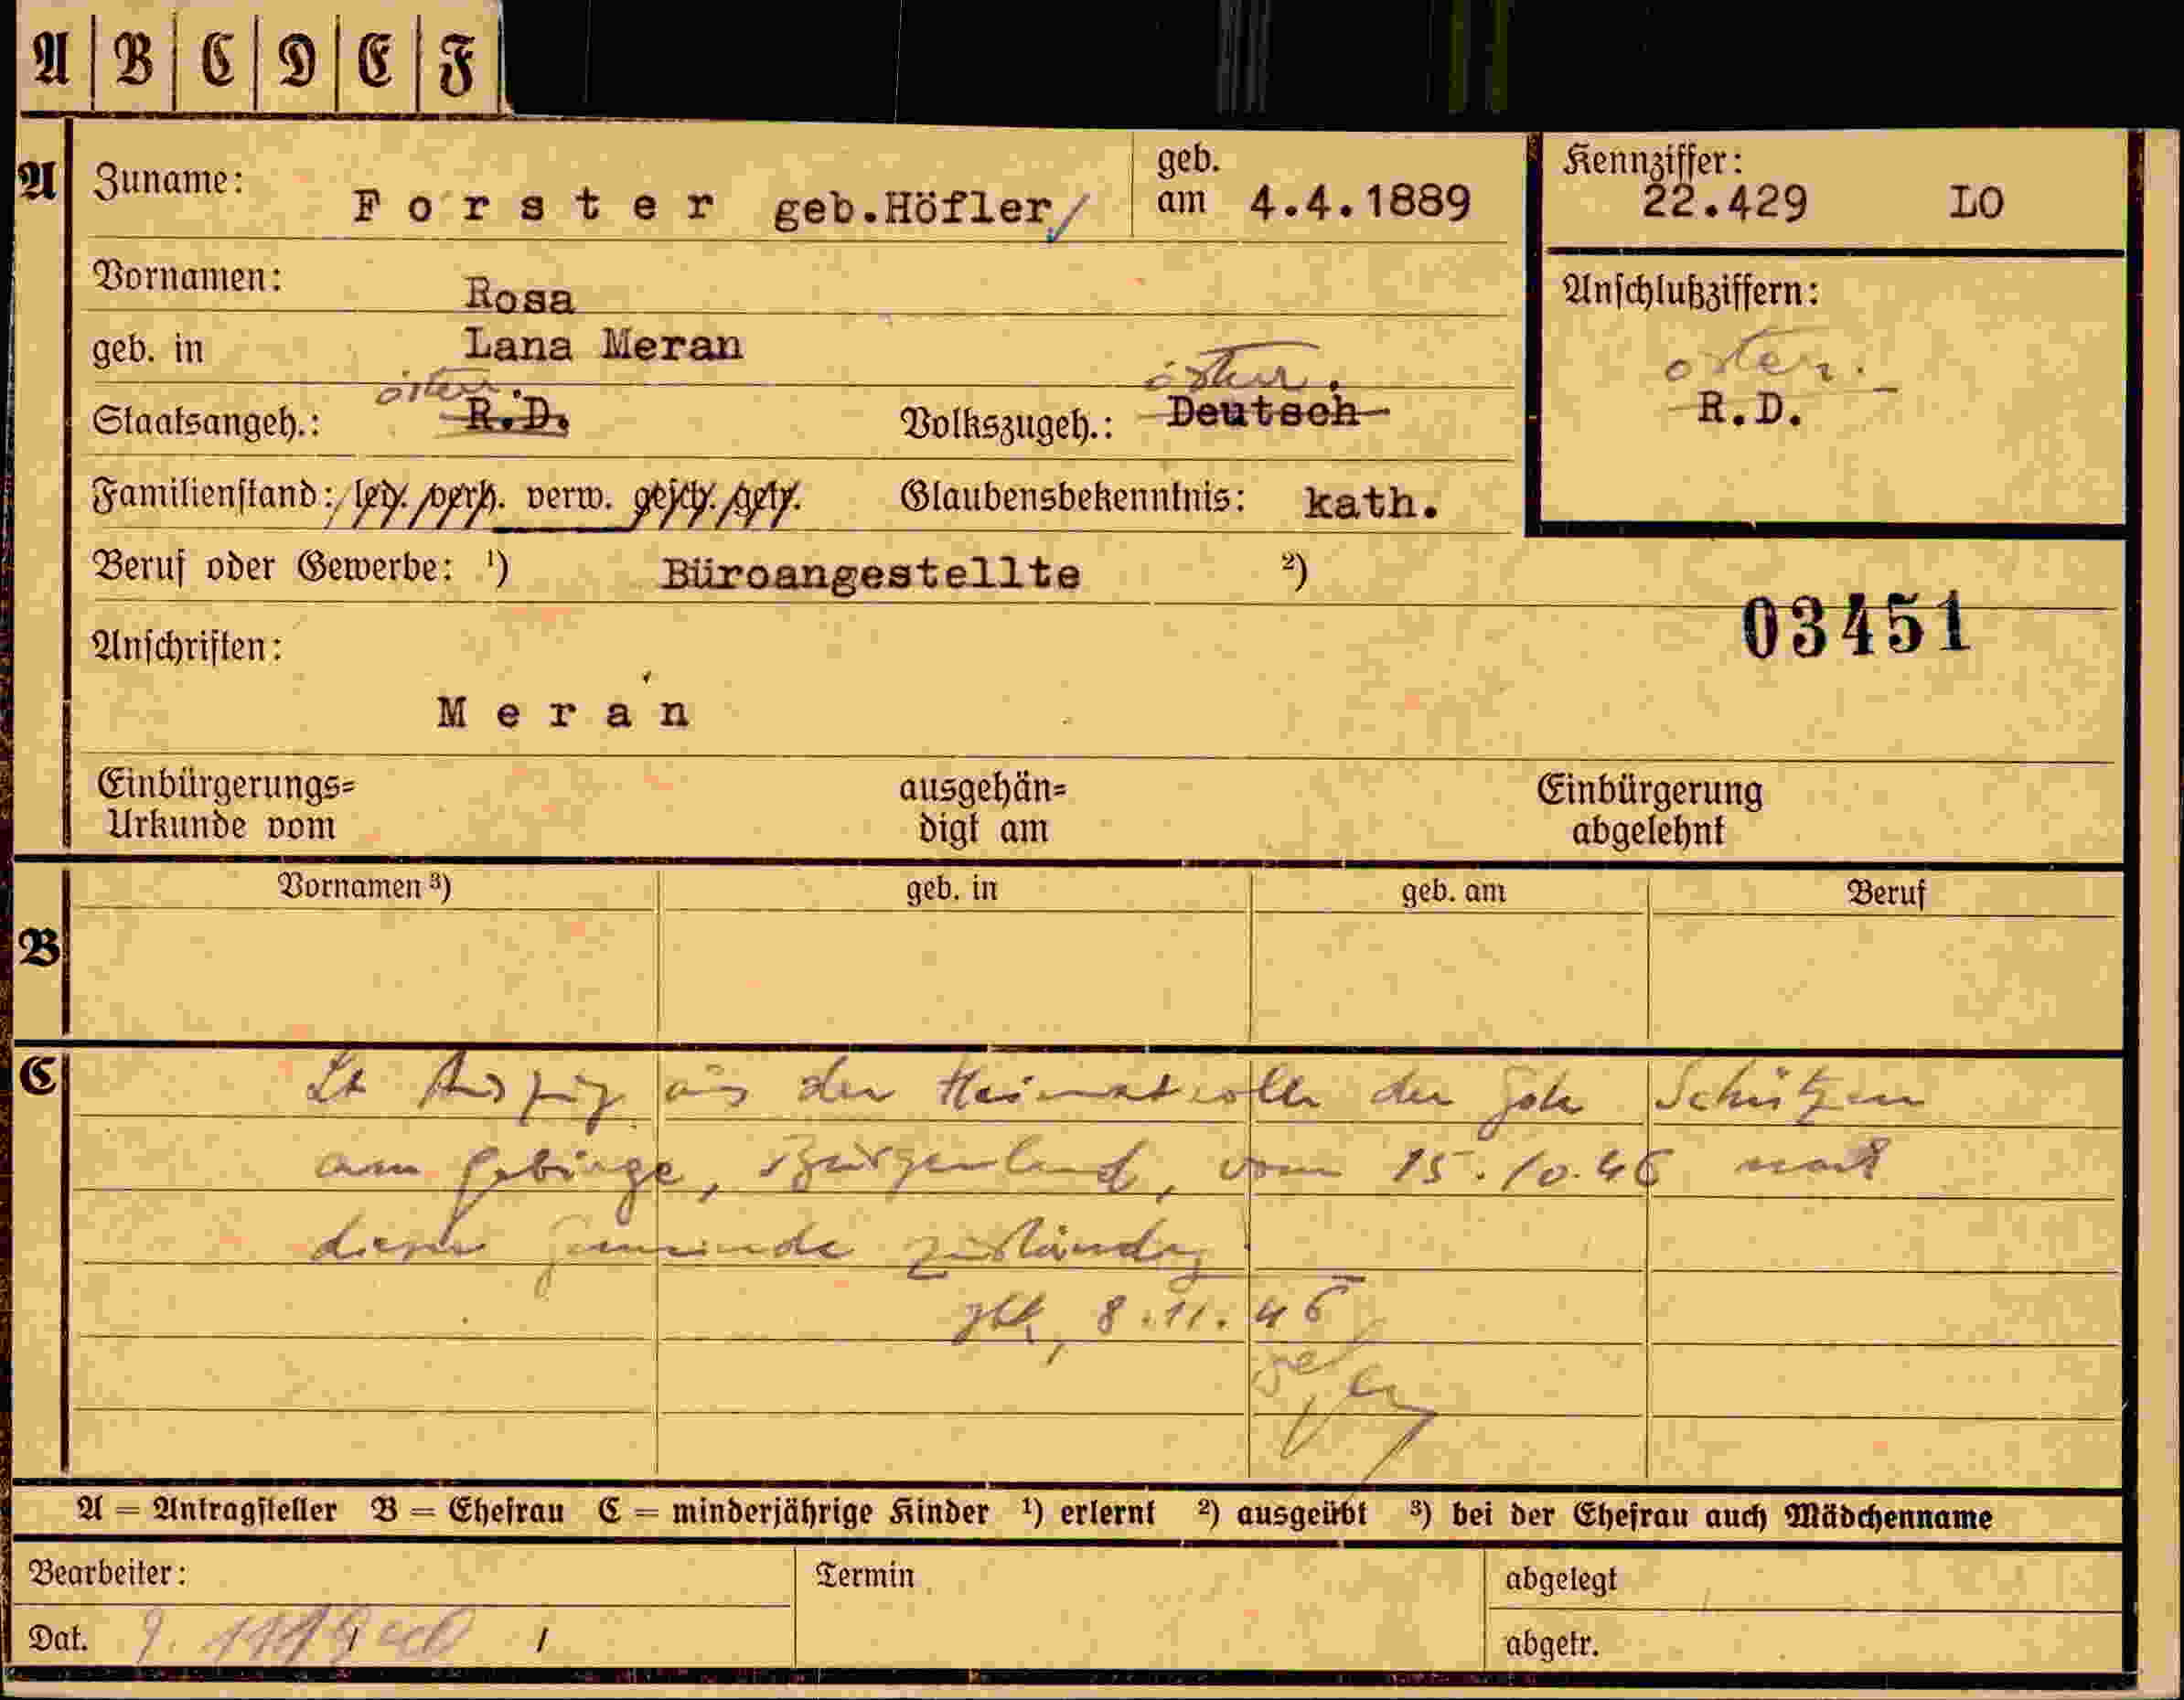 A B C D E F
A Zuname: Forster geb.Höfler geb. am 4.4.1889 Kennziffer: 22.429 LO
Vornamen: Rosa Anschlußziffern:
geb. in Lana Meran
österr. österr. österr.
Staatsangeh.: R.D. Volkszugeh.: Deutsch R.D.
Familienstand: led. verh. verw. gesch. getr. Glaubensbekenntnis: kath.
Beruf oder Gewerbe: ¹) Büroangestellte ²)
03451
Anschriften:
Meran
Einbürgerungs= ausgehän= Einbürgerung
Urkunde vom digt am abgelehnt
Vornamen ³) geb. in geb. am Beruf
B
C Lt Auszug aus der Heimatrolle der Schützen
am Gebirge, Burgenland, vom 15.10.46 nach
dieser Gemeinde zuständig
8.11.46
A = Antragsteller B = Ehefrau C = minderjährige Kinder ¹) erlernt ²) ausgeübt ³) bei der Ehefrau auch Mädchenname
Bearbeiter: Termin abgelegt
Dat. abgetr.